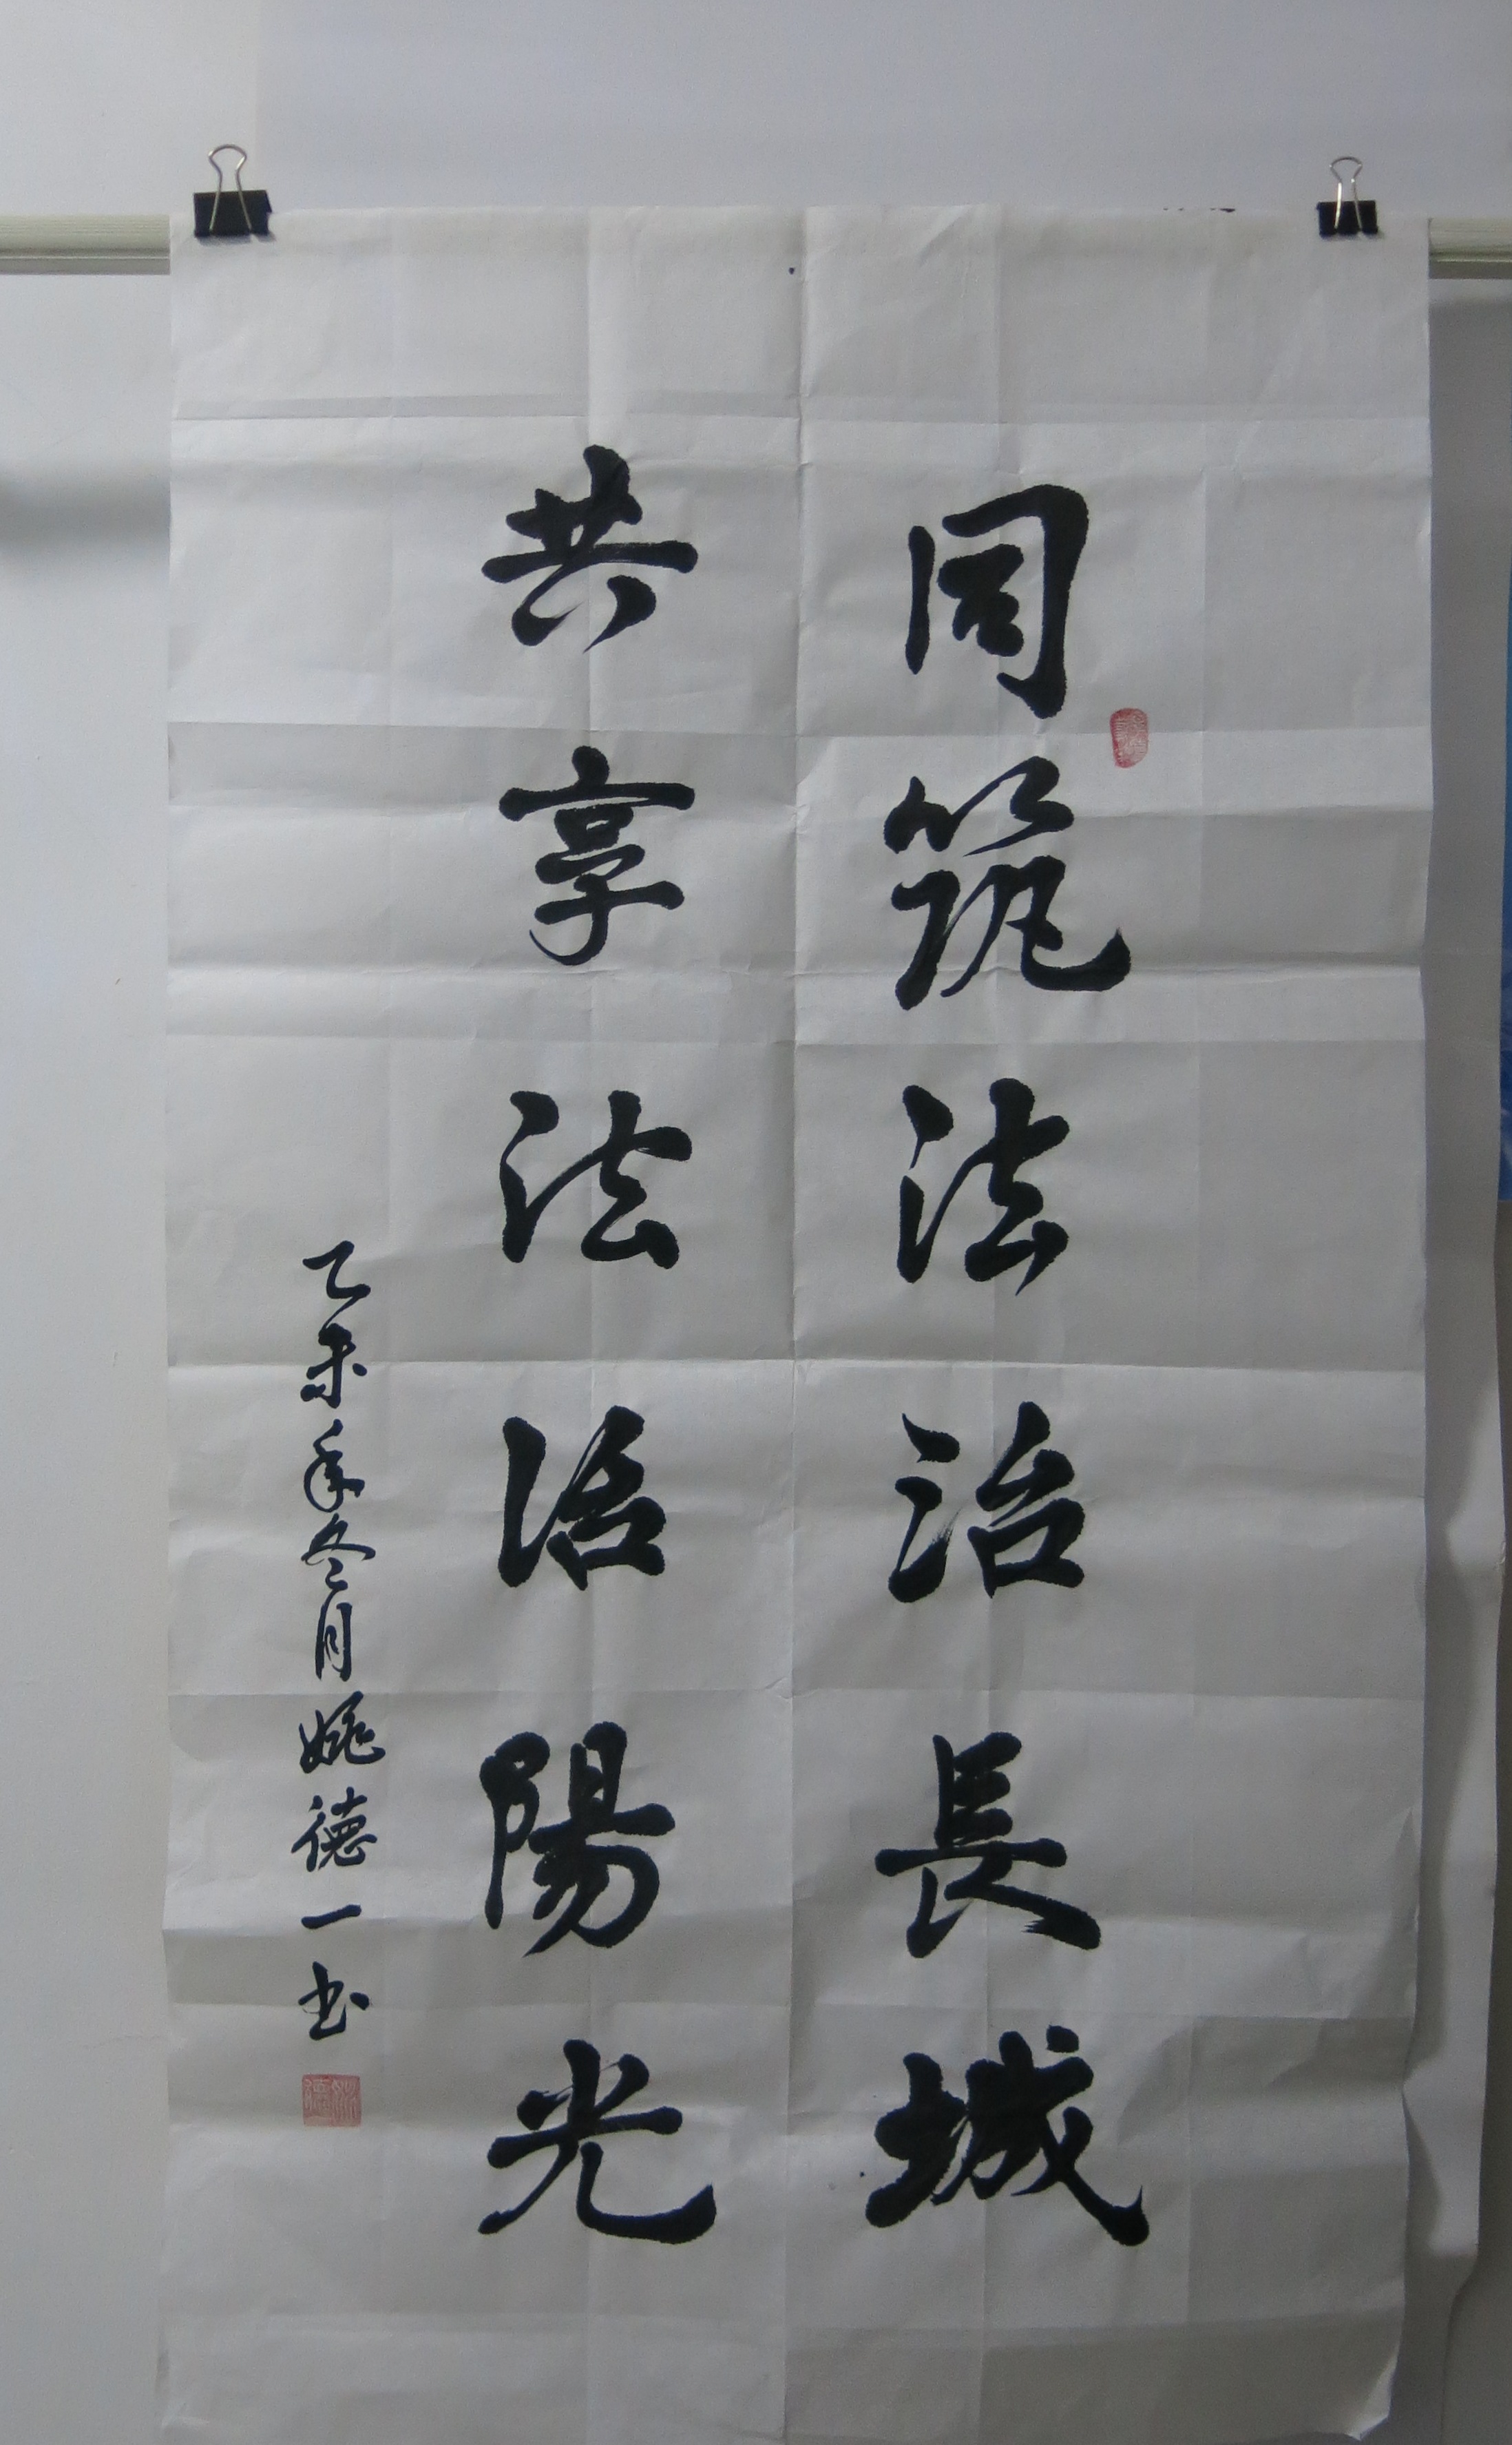 同筑法治長城
共享法治陽光
乙未年冬月姚德一书